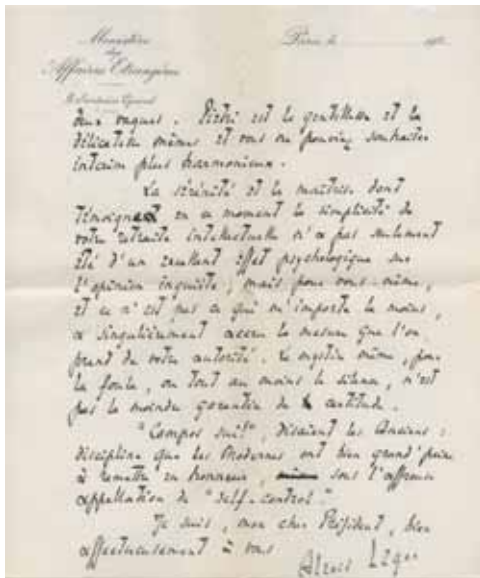 Ministère
des
Affaires Etrangères
Le Secrétaire Général
Paris, le
deux vagues. Piétri est la gentillesse et la
délicatesse mêmes et vous ne pouviez souhaiter
interim plus harmonieux.
La sérénité et la maîtrise dont
témoignent en ce moment la simplicité de
votre retraite intellectuelle n'a pas seulement
été d'un excellent effet psychologique sur
l'opinion inquiète ; mais, pour vous-même,
et ce n'est pas ce qui m'importe le moins,
a singulièrement accru la mesure que l'on
prend de votre autorité. Le mystère même, pour
la foule, ou tout au moins le silence, n'est
pas la moindre garantie de certitude.
"Compos sui!", disaient les Anciens :
discipline que les Modernes ont bien grand'peine
à remettre en honneur, sous l'affreuse
appellation de "self-control."
Je suis, mon cher Président, bien
affectueusement à vous
Alexis Léger